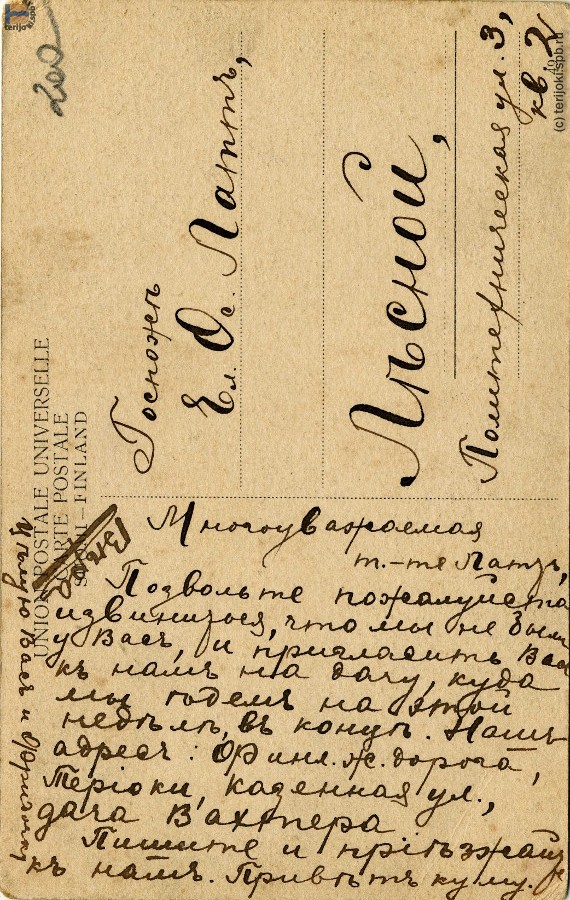 200
Госпожѣ
Ел. Ос. Латтъ,
Лѣсной,
Политехническая ул. 3,
кв. 2
UNION POSTALE UNIVERSELLE
CARTE POSTALE
SUOMI – FINLAND
Многоуважаемая
m-me Латтъ,
Позвольте пожалуйста
извиниться, что мы не были
у Васъ, и пригласить Васъ
къ намъ на дачу, куда
мы ѣдемъ на этой
недѣлѣ, въ концѣ. Нашъ
адресъ: Финл. ж. дорога,
Теріоки, казенная ул.,
дача Вахтера
Пишите и пріѣзжайте
къ намъ. Привѣтъ куму.
Цѣлую Васъ и
terijoki.spb.ru
(c) terijoki.spb.ru